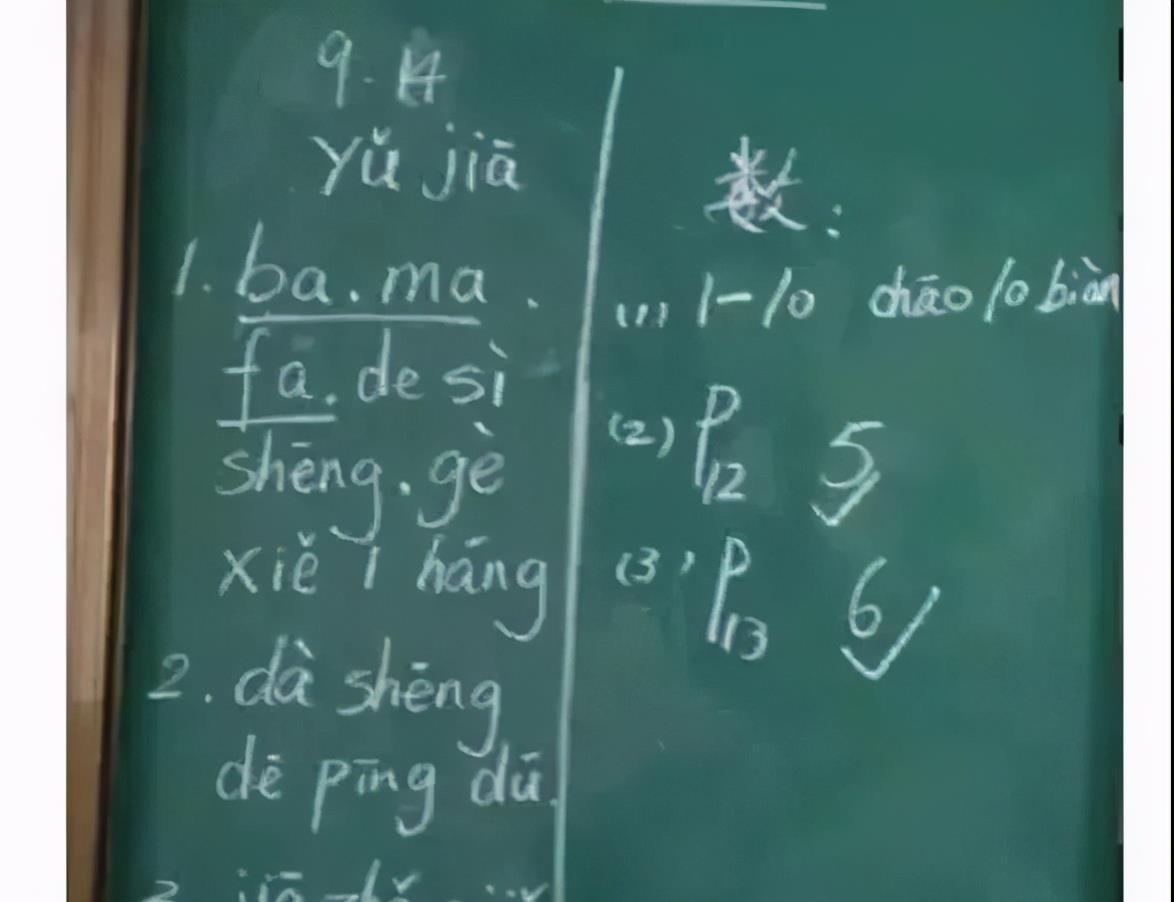 9.14
yǔ jiā
1. ba. ma.
fa. de sì
shēng. gè
xiě 1 háng
2. dà shēng
dē pīng dú.
数:
(1) 1-10 chāo 10 biàn
(2) P12 5
(3) P13 6